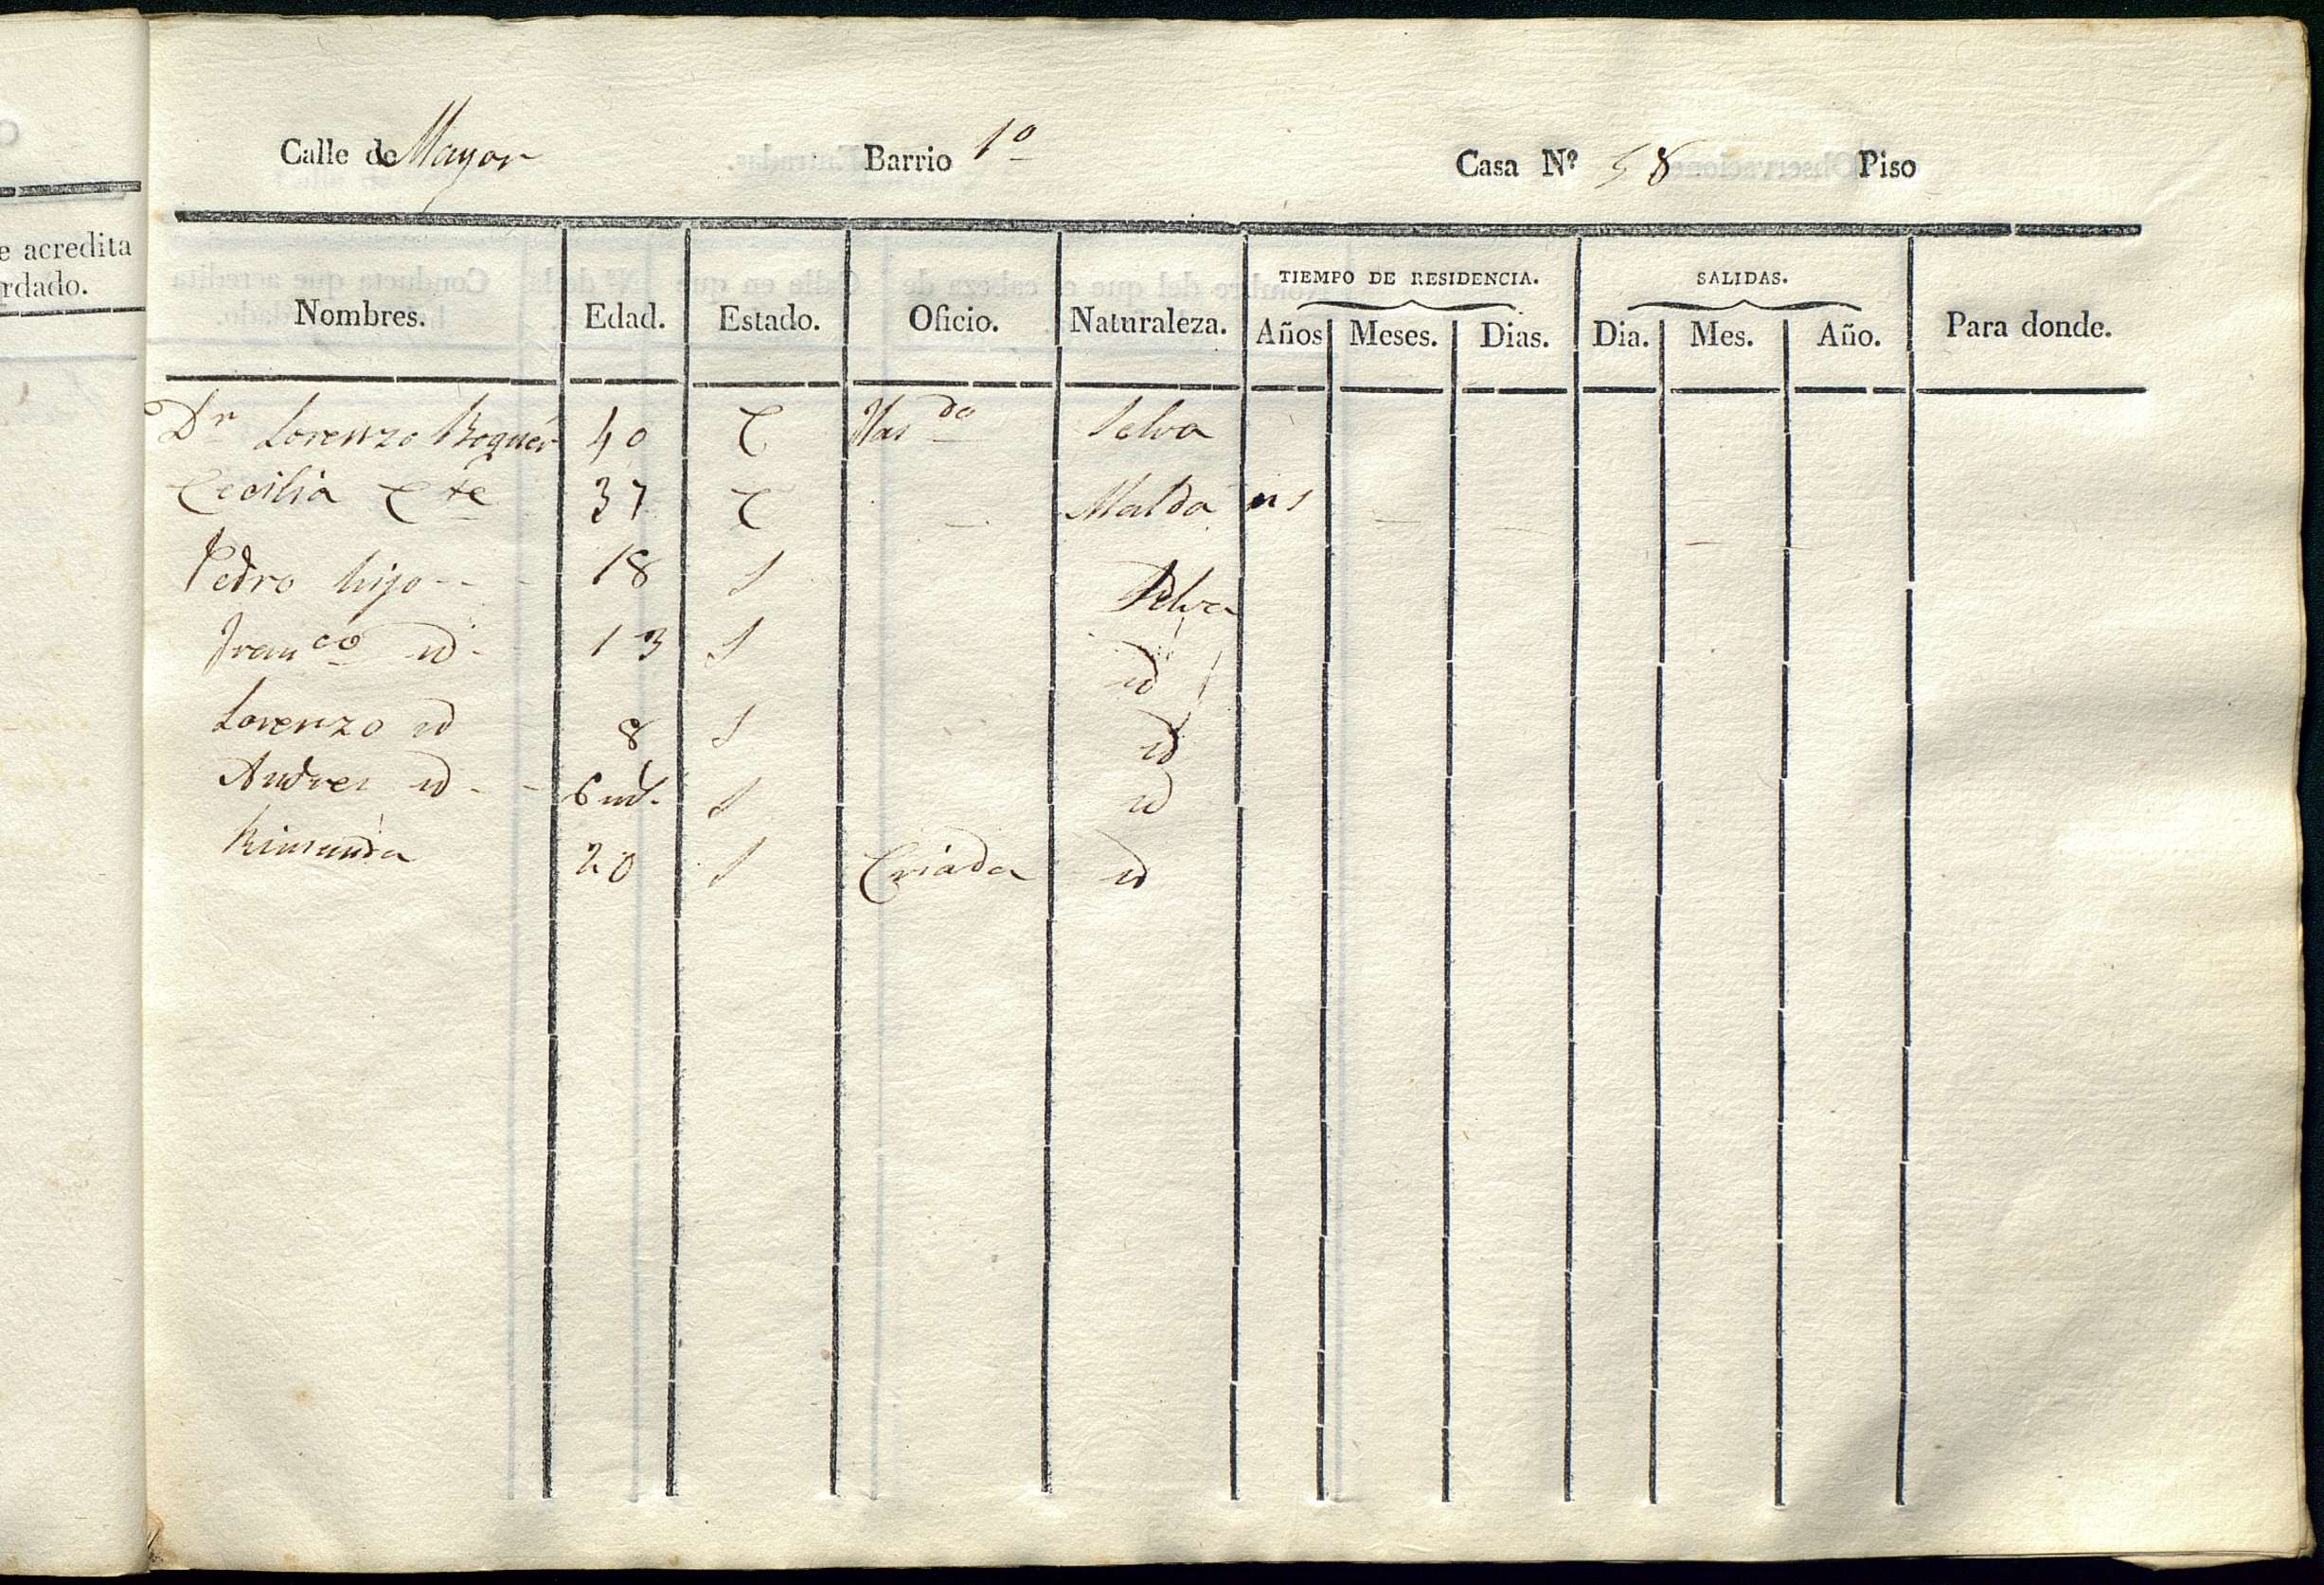 e acredita
rdado.
Calle de Mayor Barrio 1º Casa Nº 58 Piso
TIEMPO DE RESIDENCIA. SALIDAS.
Nombres. Edad. Estado. Oficio. Naturaleza. Años Meses. Dias. Dia. Mes. Año. Para donde.
Dn Lorenzo Boquér 40 C Hasdo Selva
Cecilia Cte 37 C — Malda — — —
Pedro hijo - - - 18 S Selva
Franco id - 13 S id
Lorenzo id 8 S id
Andreu id - - 6 ms. S id
Rimunda 20 S Criada id